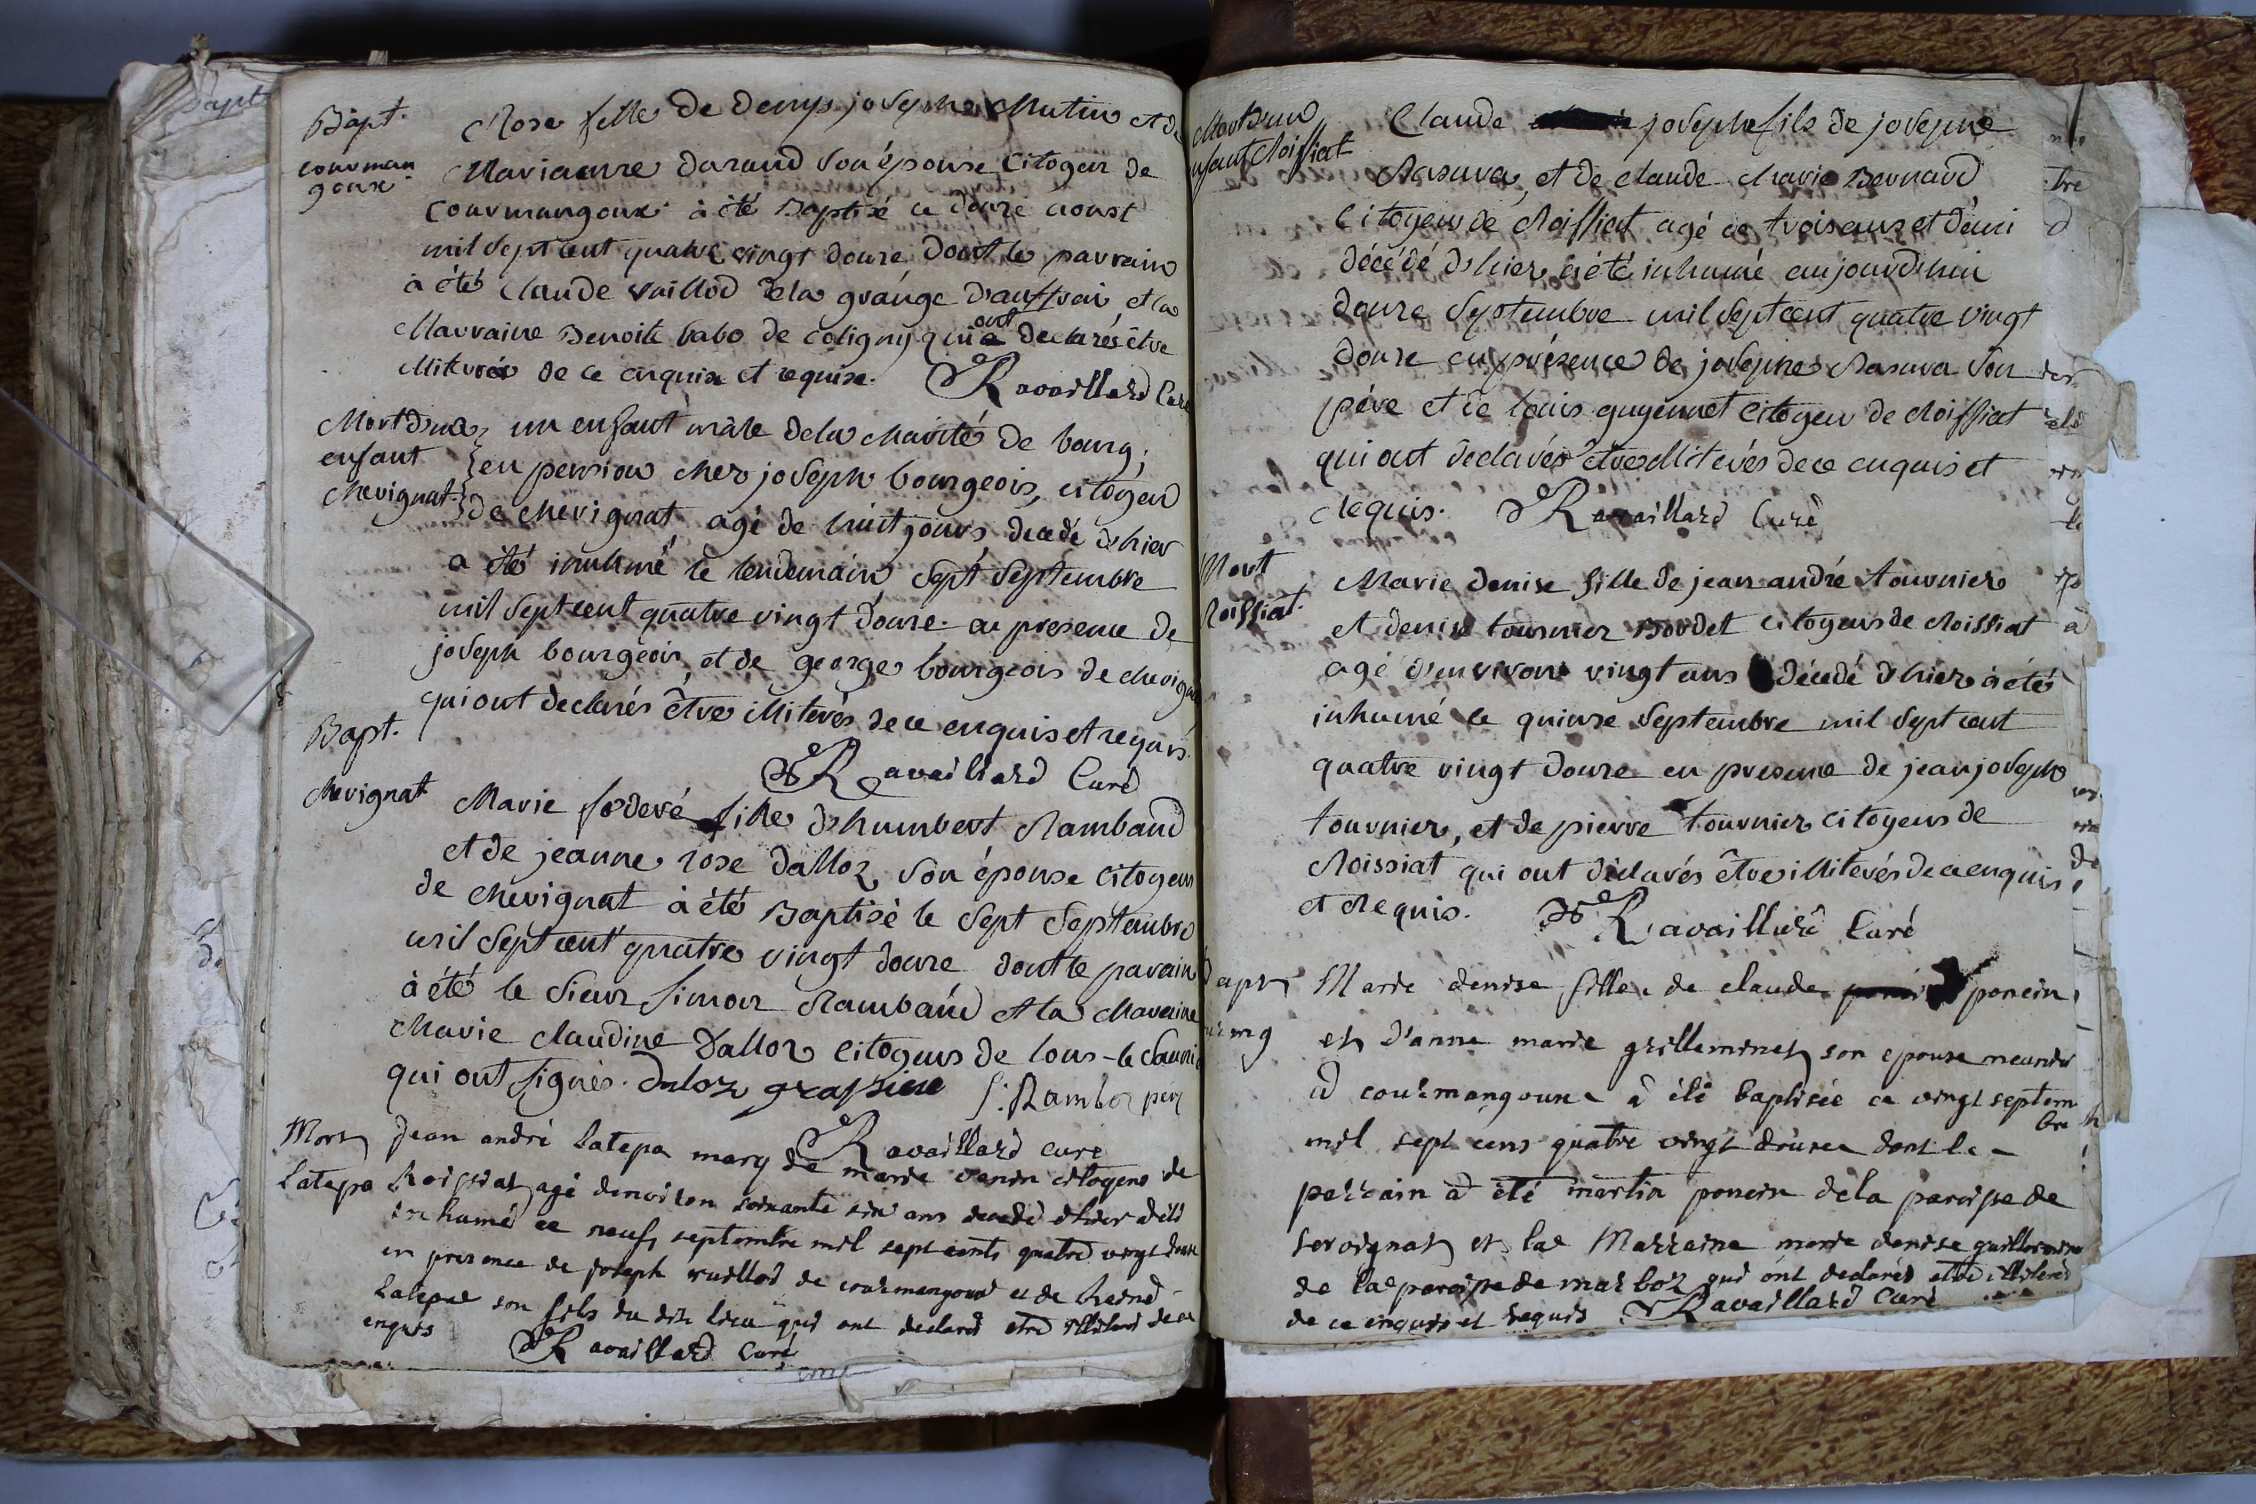 Bapt.
courman
goux.
Rose fille de denys joseph Mutin et de
Marianne darand son épouse citoyen de
Courmangoux à été Baptisé ce douze aoust
mil sept cent quatre vingt douze dont le parrain
à été claude vuillod de la grange d'auffrai et la
Marraine Benoite babo de coligny qui ont declarés être
illiterés de ce enquise et requise. Ravaillard Curé
Mort d'un
enfant
chevignat.
un enfant mâle de la charité de bourg,
en pension chez joseph bourgeois, citoyen
de chevignat agé de huit jours, decedé d'hier
a été inuhmé le lendemain sept septembre
mil sept cent quatre vingt douze. en presence de
joseph bourgeois, et de george bourgeois de chevignat
qui ont declarés être illiterés de ce enquis et requis.
Ravaillard Curé
Bapt.
chevignat
Marie féderé fille d'humbert Rambaud
et de jeanne rose dalloz son épouse citoyens
de chevignat à été Baptisé le sept septembre
mil sept cent quatre vingt douze dont le parain
à été le sieur simon Rambaud et la Maraine
Marie claudine Dalloz citoyens de lons-le saunier
qui ont signés. daloz grassine S. Ramboz
Ravaillard curé
Mort
Latepa
Jean andré Latepa mary de marie venin citoyens de
Roissiat agé denviron soixante six ans decedé d'hier a été
inhumé ce neuf septembre mil sept cents quatre vingt douze
en presence de joseph vuillod de courmangoux et de René
Latepa son fils du dit lieu qui ont declarés etre illiterés de ce
enquis
Ravaillard Curé
Mort d'un
enfant Roissiat
Claude joseph fils de joseph
Rasurva et de claude Marie Bernard
citoyens de Roissiat agé de trois ans et demi
décédé d'hier à été inhumé aujourd'hui
douze septembre mil sept cent quatre vingt
douze en présence de joseph Rasurva son
pére et de louis guyennet citoyen de Roissiat
qui ont declarés être illiterés de ce enquis et
Requis. Ravaillard Curé
Mort
Roissiat.
Marie denise fille de jean andré tournier
et denise tournier Bordet citoyens de Roissiat
agé d'environ vingt ans décédé d'hier à été
inhumé le quinze septembre mil sept cent
quatre vingt douze en presence de jean joseph
tournier, et de pierre tournier citoyens de
Roissiat qui ont déclarés être illiterés de ce enquis
et Requis. Ravaillard Curé
Bapt
Marie denise fille de claude poncin
et d'anne marie grilleminet son epouse meunier
a courmangoux a été baptisée ce vingt septem
bre
mil sept cens quatre vingt douze dont le
parrain a été martin poncin de la paroisse de
servignat et la Marraine marie denise guillermine
de la paroisse de marboz qui ont declarés etre illiterés
de ce enquis et requis Ravaillard Curé